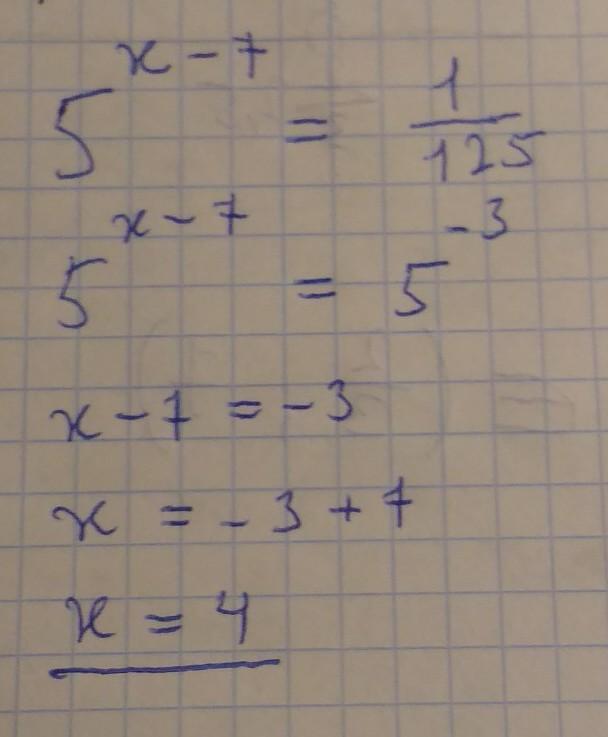 5^{x-7} = \frac{1}{125}
5^{x-7} = 5^{-3}
x - 7 = -3
x = -3 + 7
x = 4